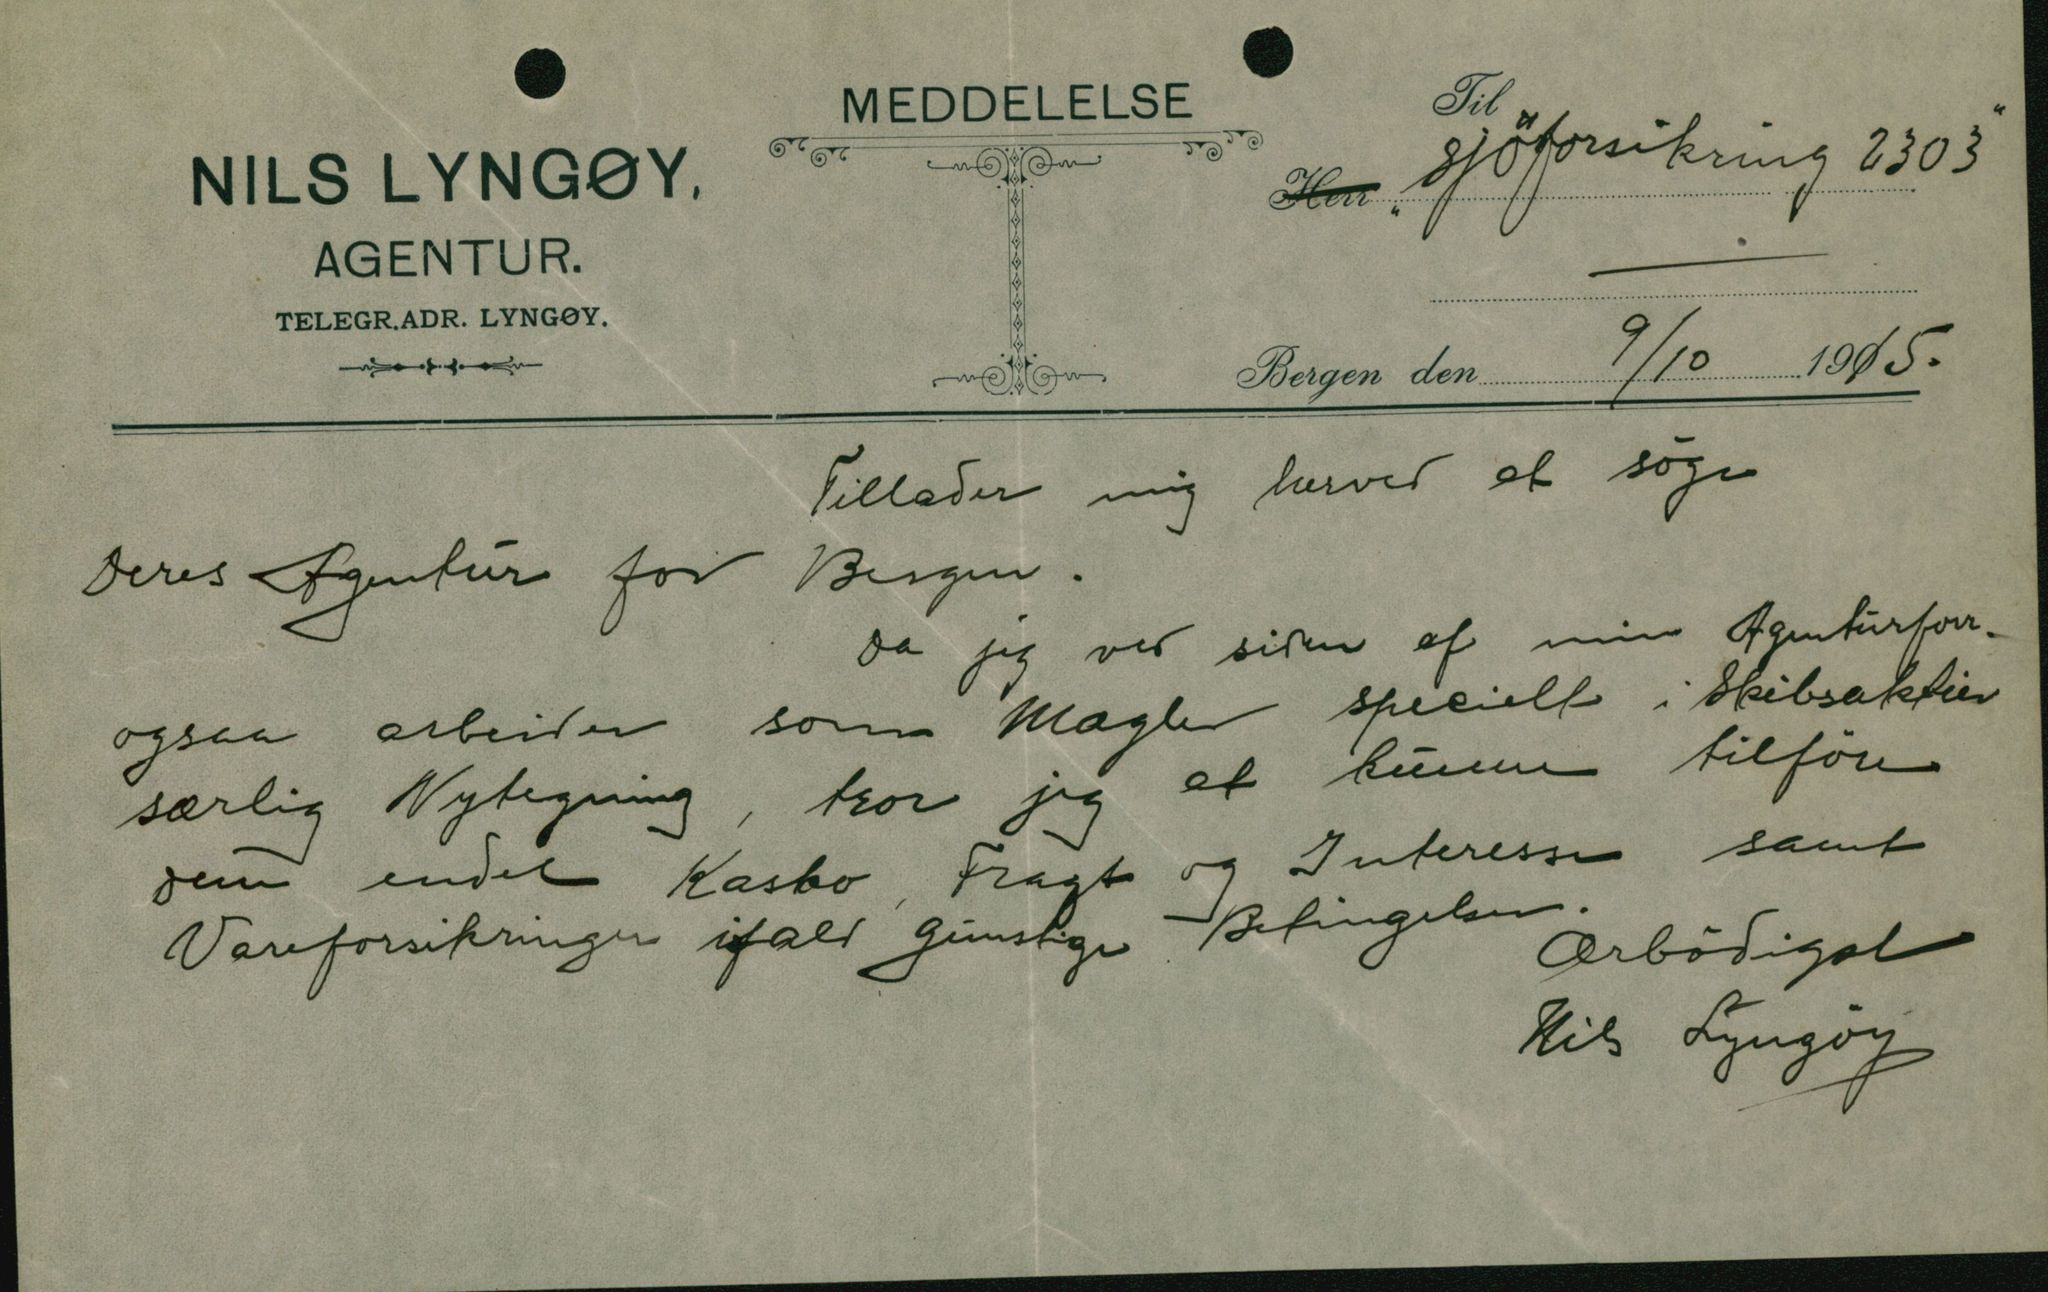 NILS LYNGØY.
AGENTUR.
TELEGR.ADR. LYNGØY.
MEDDELELSE
Til
Herr „Sjöforsikring 2303"
Bergen den 9/10 1915.
Tillader mig herved at söge
Deres Agentur for Bergen.
Da jeg ved siden af min Agenturforr.
ogsaa arbeider som Megler specielt i Skibsaktier
særlig Nytegning, tror jeg at kunne tilföre
Dem endel Kasko, Fragt og Interesse samt
Vareforsikringer ifald gunstige Betingelser.
Ærbödigst
Nils Lyngöy